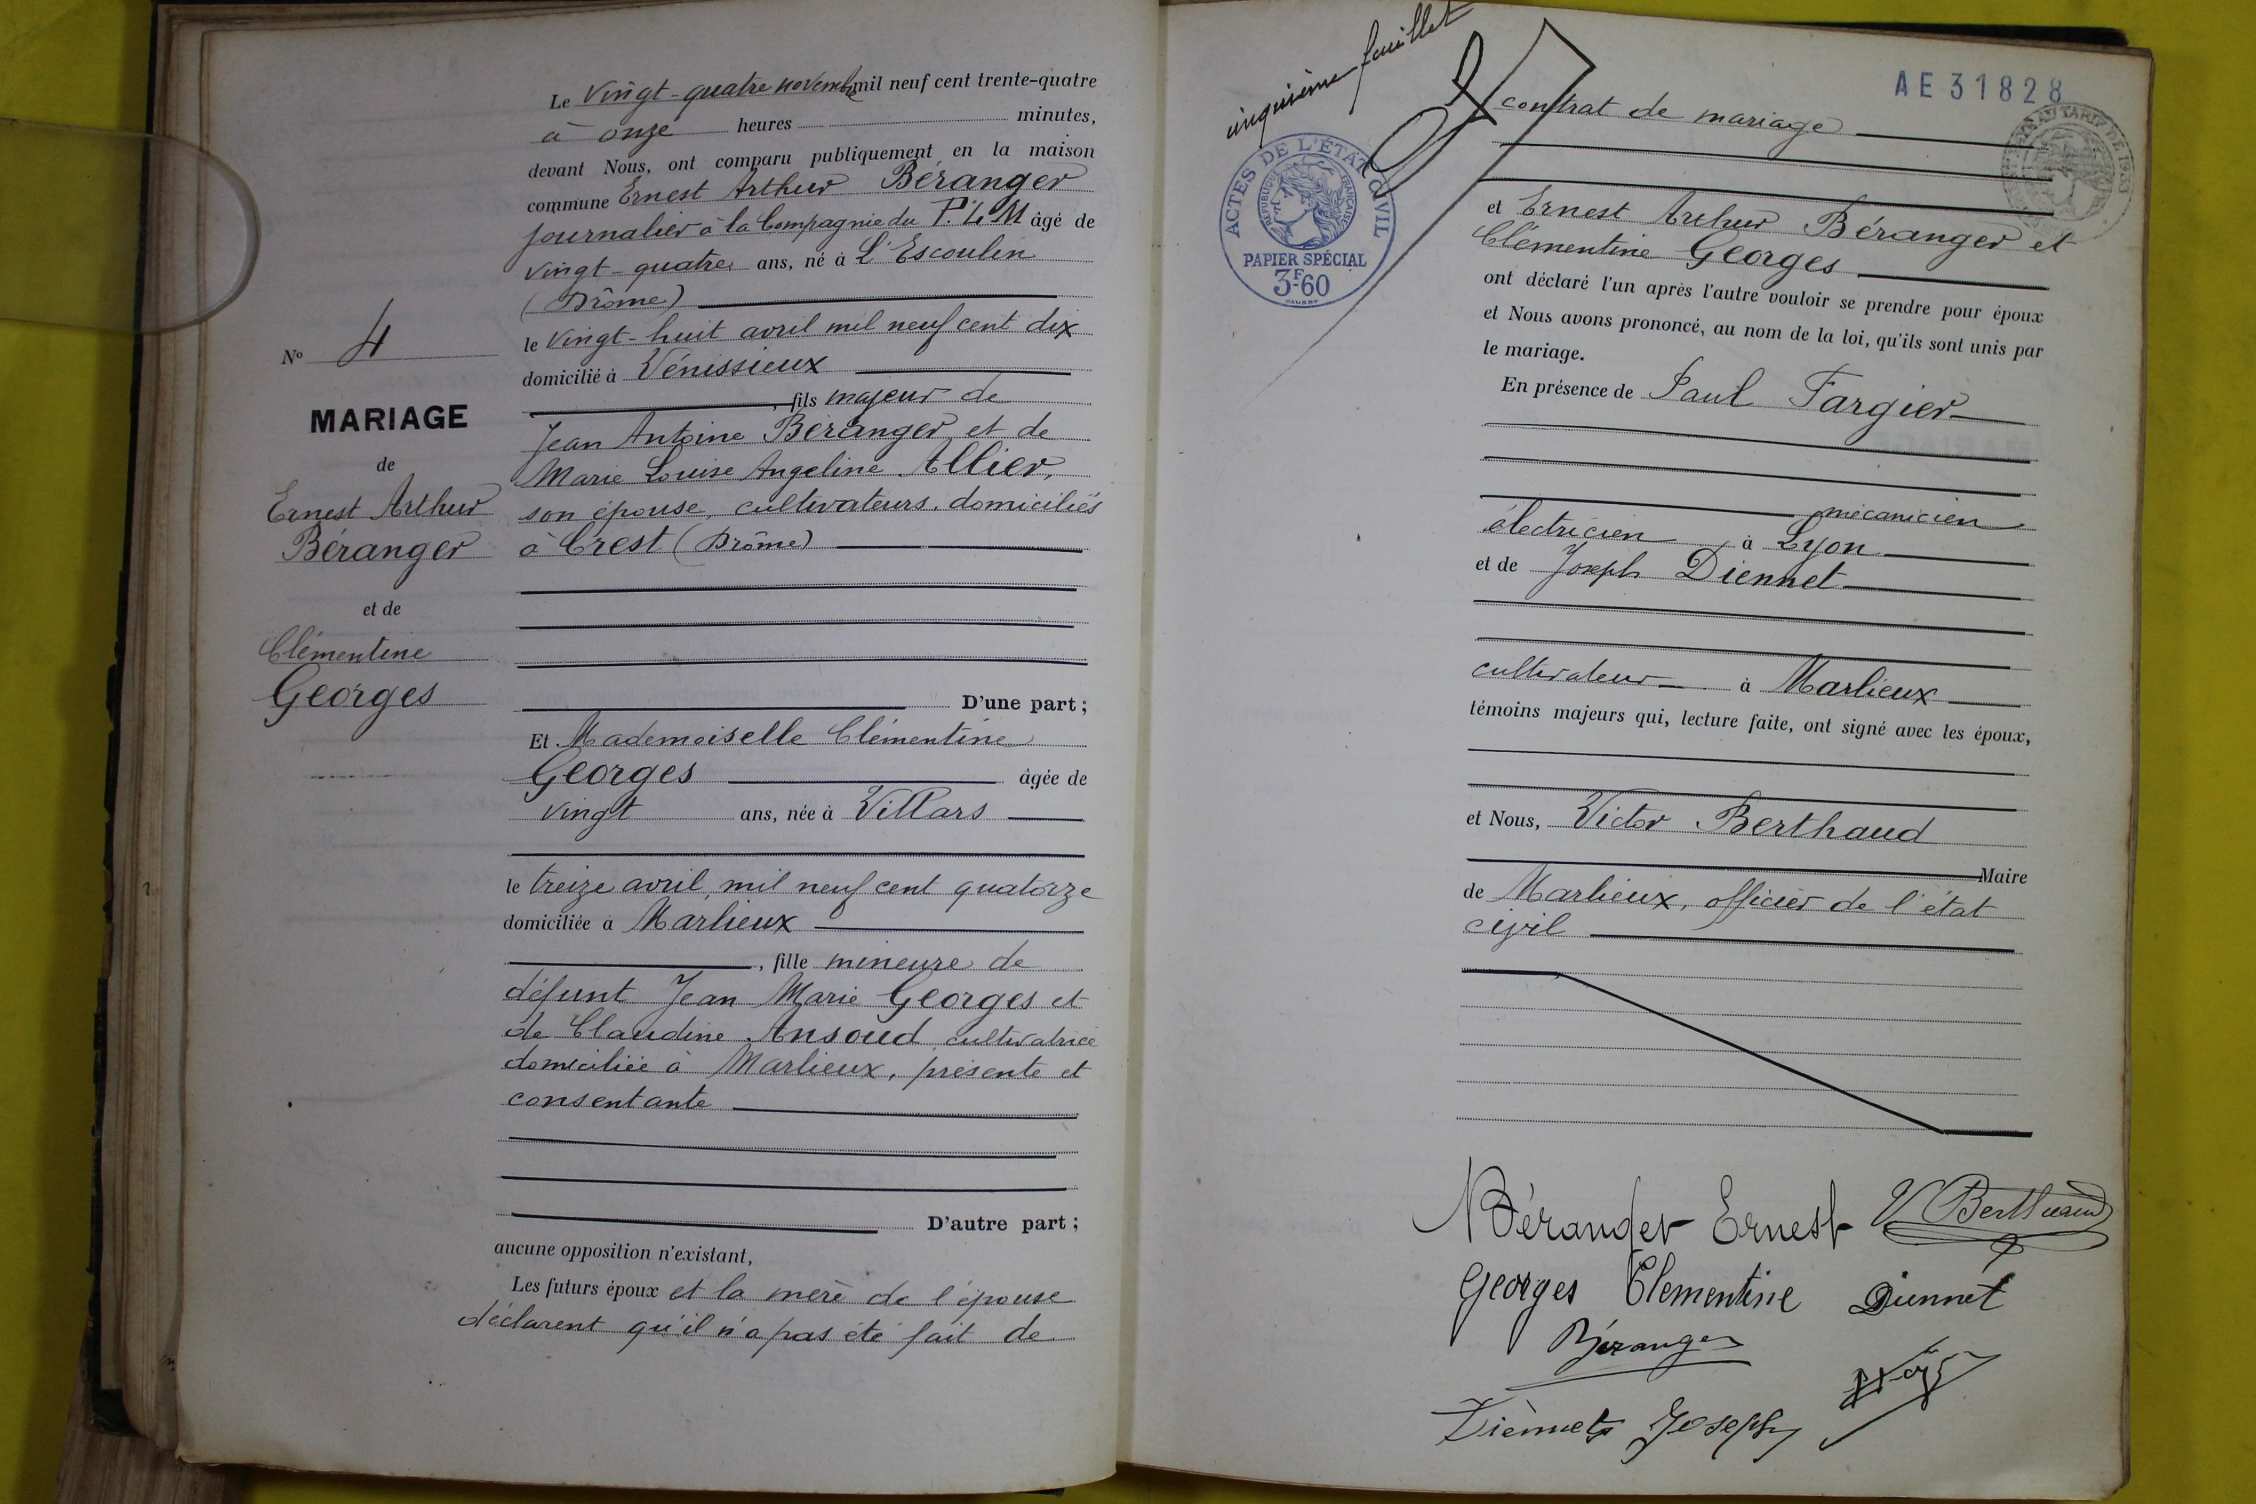 N° 4
MARIAGE
de
Ernest Arthur
Béranger
et de
Clémentine
Georges
Le vingt-quatre novembre mil neuf cent trente-quatre
à onze heures minutes,
devant Nous, ont comparu publiquement en la maison
commune Ernest Arthur Béranger
journalier à la Compagnie du P.L.M âgé de
vingt-quatre ans, né à L'Escoulin
(Drôme)
le vingt-huit avril mil neuf cent dix
domicilié à Vénissieux
, fils majeur de
Jean Antoine Béranger et de
Marie Louise Angeline Allier,
son épouse, cultivateurs, domiciliés
à Crest (Drôme)
D'une part ;
Et Mademoiselle Clémentine
Georges âgée de
vingt ans, née à Villars
le treize avril, mil neuf cent quatorze
domiciliée à Marlieux
, fille mineure de
défunt Jean Marie Georges et
de Claudine Ansoud cultivatrice
domiciliée à Marlieux, présente et
consentante
D'autre part ;
aucune opposition n'existant,
Les futurs époux et la mère de l'épouse
déclarent qu'il n'a pas été fait de
cinquième feuillet
ACTES DE L'ÉTAT CIVIL
RÉPUBLIQUE FRANÇAISE
PAPIER SPÉCIAL
3F.60
AE 31828
contrat de mariage
et Ernest Arthur Béranger et
Clémentine Georges
ont déclaré l'un après l'autre vouloir se prendre pour époux
et Nous avons prononcé, au nom de la loi, qu'ils sont unis par
le mariage.
En présence de Paul Fargier
mécanicien
électricien à Lyon
et de Joseph Diennet
cultivateur à Marlieux
témoins majeurs qui, lecture faite, ont signé avec les époux,
et Nous, Victor Berthaud
Maire
de Marlieux, officier de l'état
civil
Béranger Ernest V Berthaud
Georges Clementine Diennet
Béranger
Diennet Joseph